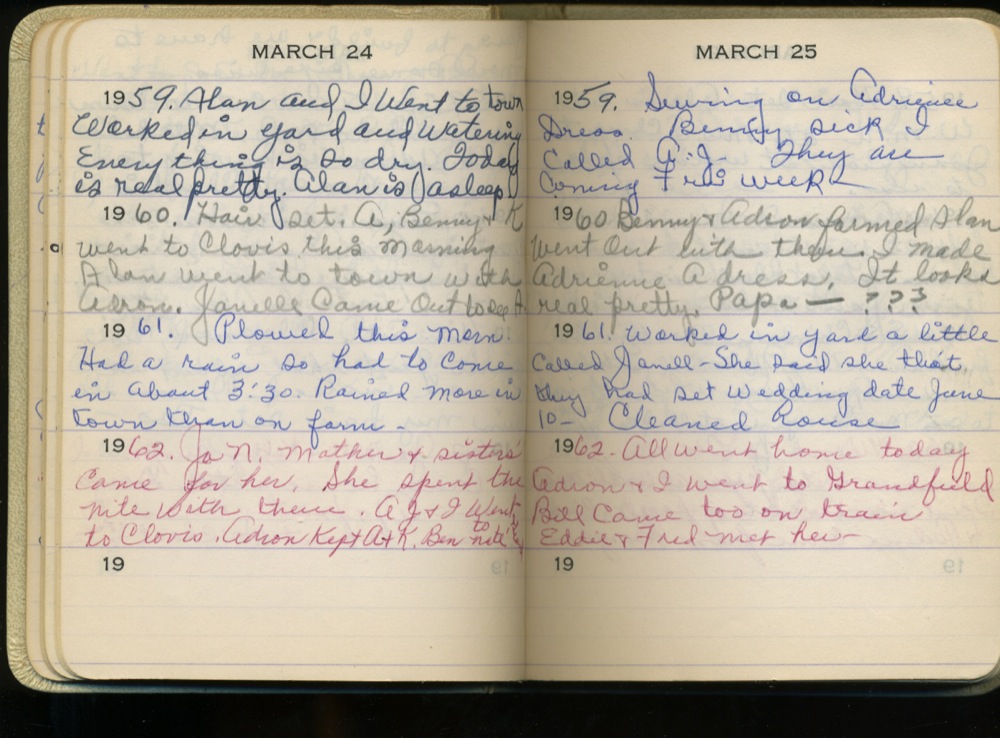 MARCH 24
1959. Alan and I Went to town
Worked in yard and Watering
Every thing is so dry. Today
is real pretty. Alan is asleep
1960. Hair set. A, Benny & K
went to Clovis this morning
Alan went to town with
Adron. Janelle Came Out to
1961. Plowed this morn.
Had a rain so had to Come
in about 3:30. Rained more in
town than on farm -
1962. Jo N. Mother & sisters
Came for her. She spent the
nite with them. A J & I Went
to Clovis. Adron Kept A & K. Ben
19
MARCH 25
1959. Sewing on Adrienne
Dress. Benny sick I
Called A.J. They are
Coming Fri week
1960 Benny & Adron farmed Alan
Went Out with them. I made
Adrienne A dress. It looks
real pretty. Papa — ???
1961. Worked in yard a little
Called Janell - She said she that
they had set Wedding date June
10 - Cleaned house
1962. All went home today
Adron & I went to Grandfield
Bill Came too on train
Eddie & Fred met her -
19